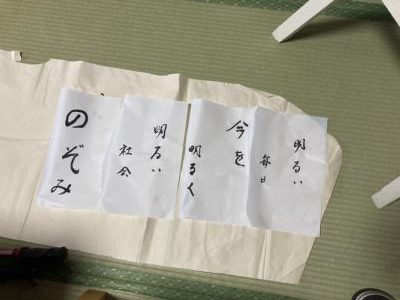 明るい
毎日
今を
明るく
明るい
社会
のぞみ